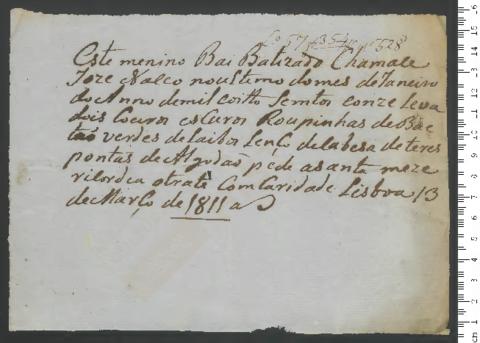 Lo 57 f 354 nº 528
Este menino Bai Batizado Chamase
Joze Nasceo noustimo domes deJaneiro
doAnno demil coitto Semtos conze Leva
dois Coeiros escuros Roupinhas de Bae
tas verdes de laibos Lenço de Cabesa de teres
pontas de Algudaõ pede asanta meze
ricordea otrate Comcaridade Lisboa 13
deMarço de 1811 a